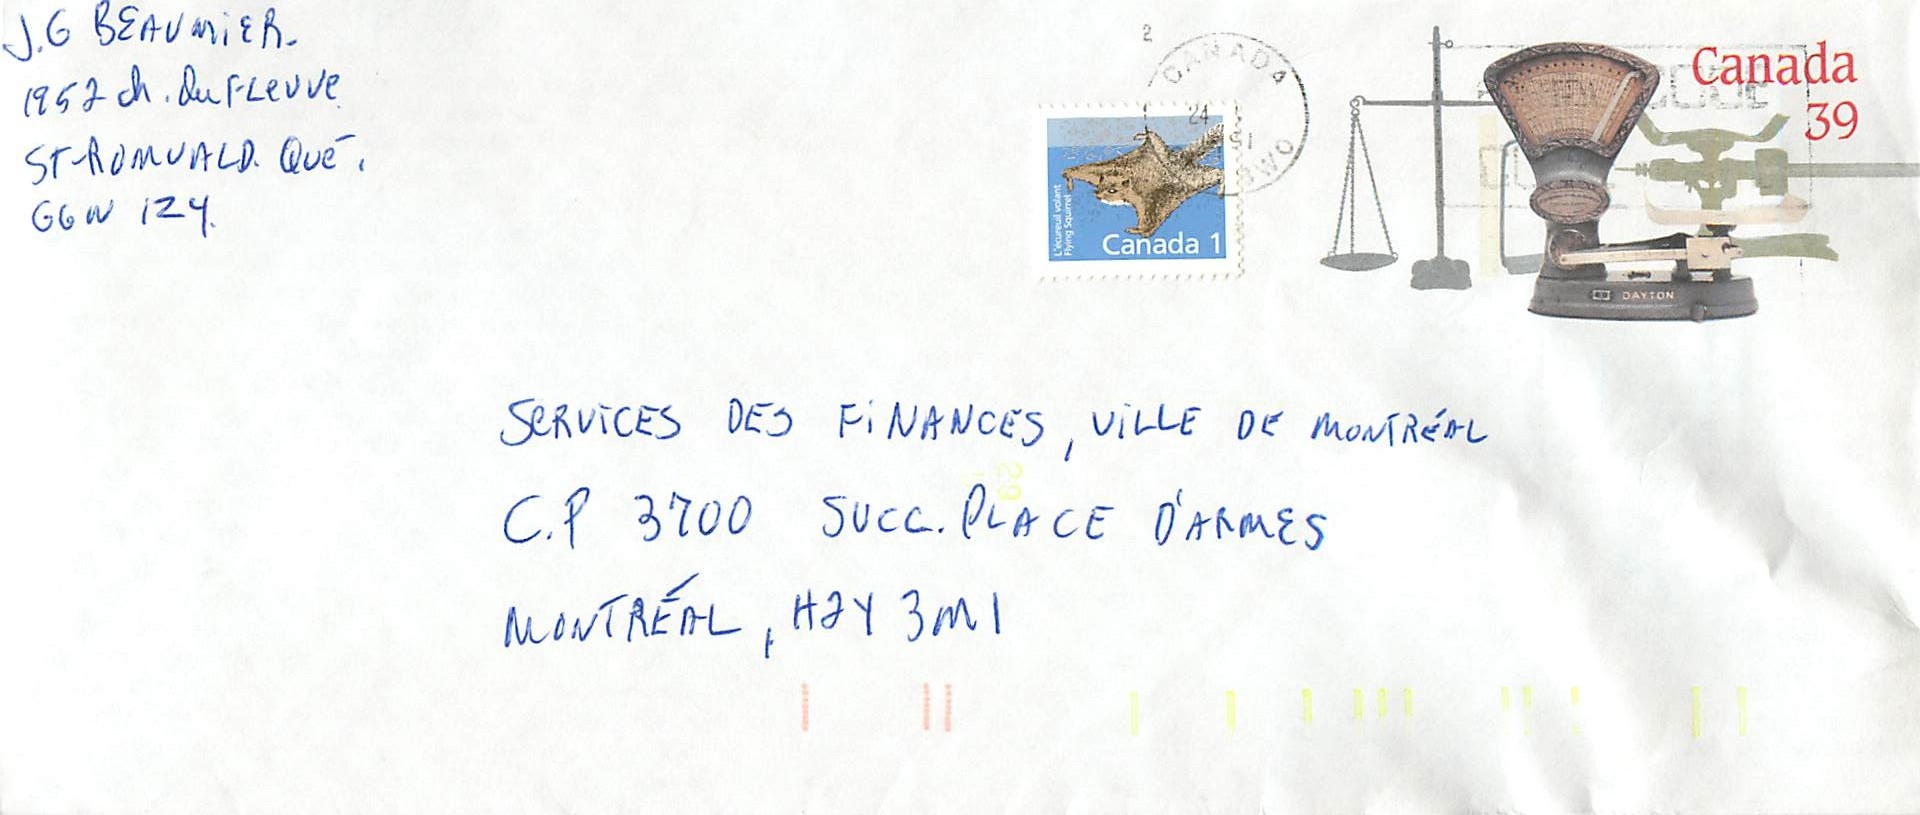 J.G BEAUMIER.
1952 ch. Du FLeuve
ST-ROMUALD. Qué.
G6W 1Z4.
2
CANADA
24
Canada
39
L'écureuil volant
Flying Squirrel
Canada 1
DAYTON
SERVICES DES FINANCES, VILLE DE MONTRÉAL
28
C.P 3700 SUCC. PLACE D'ARMES
MONTRÉAL, H2Y 3M1